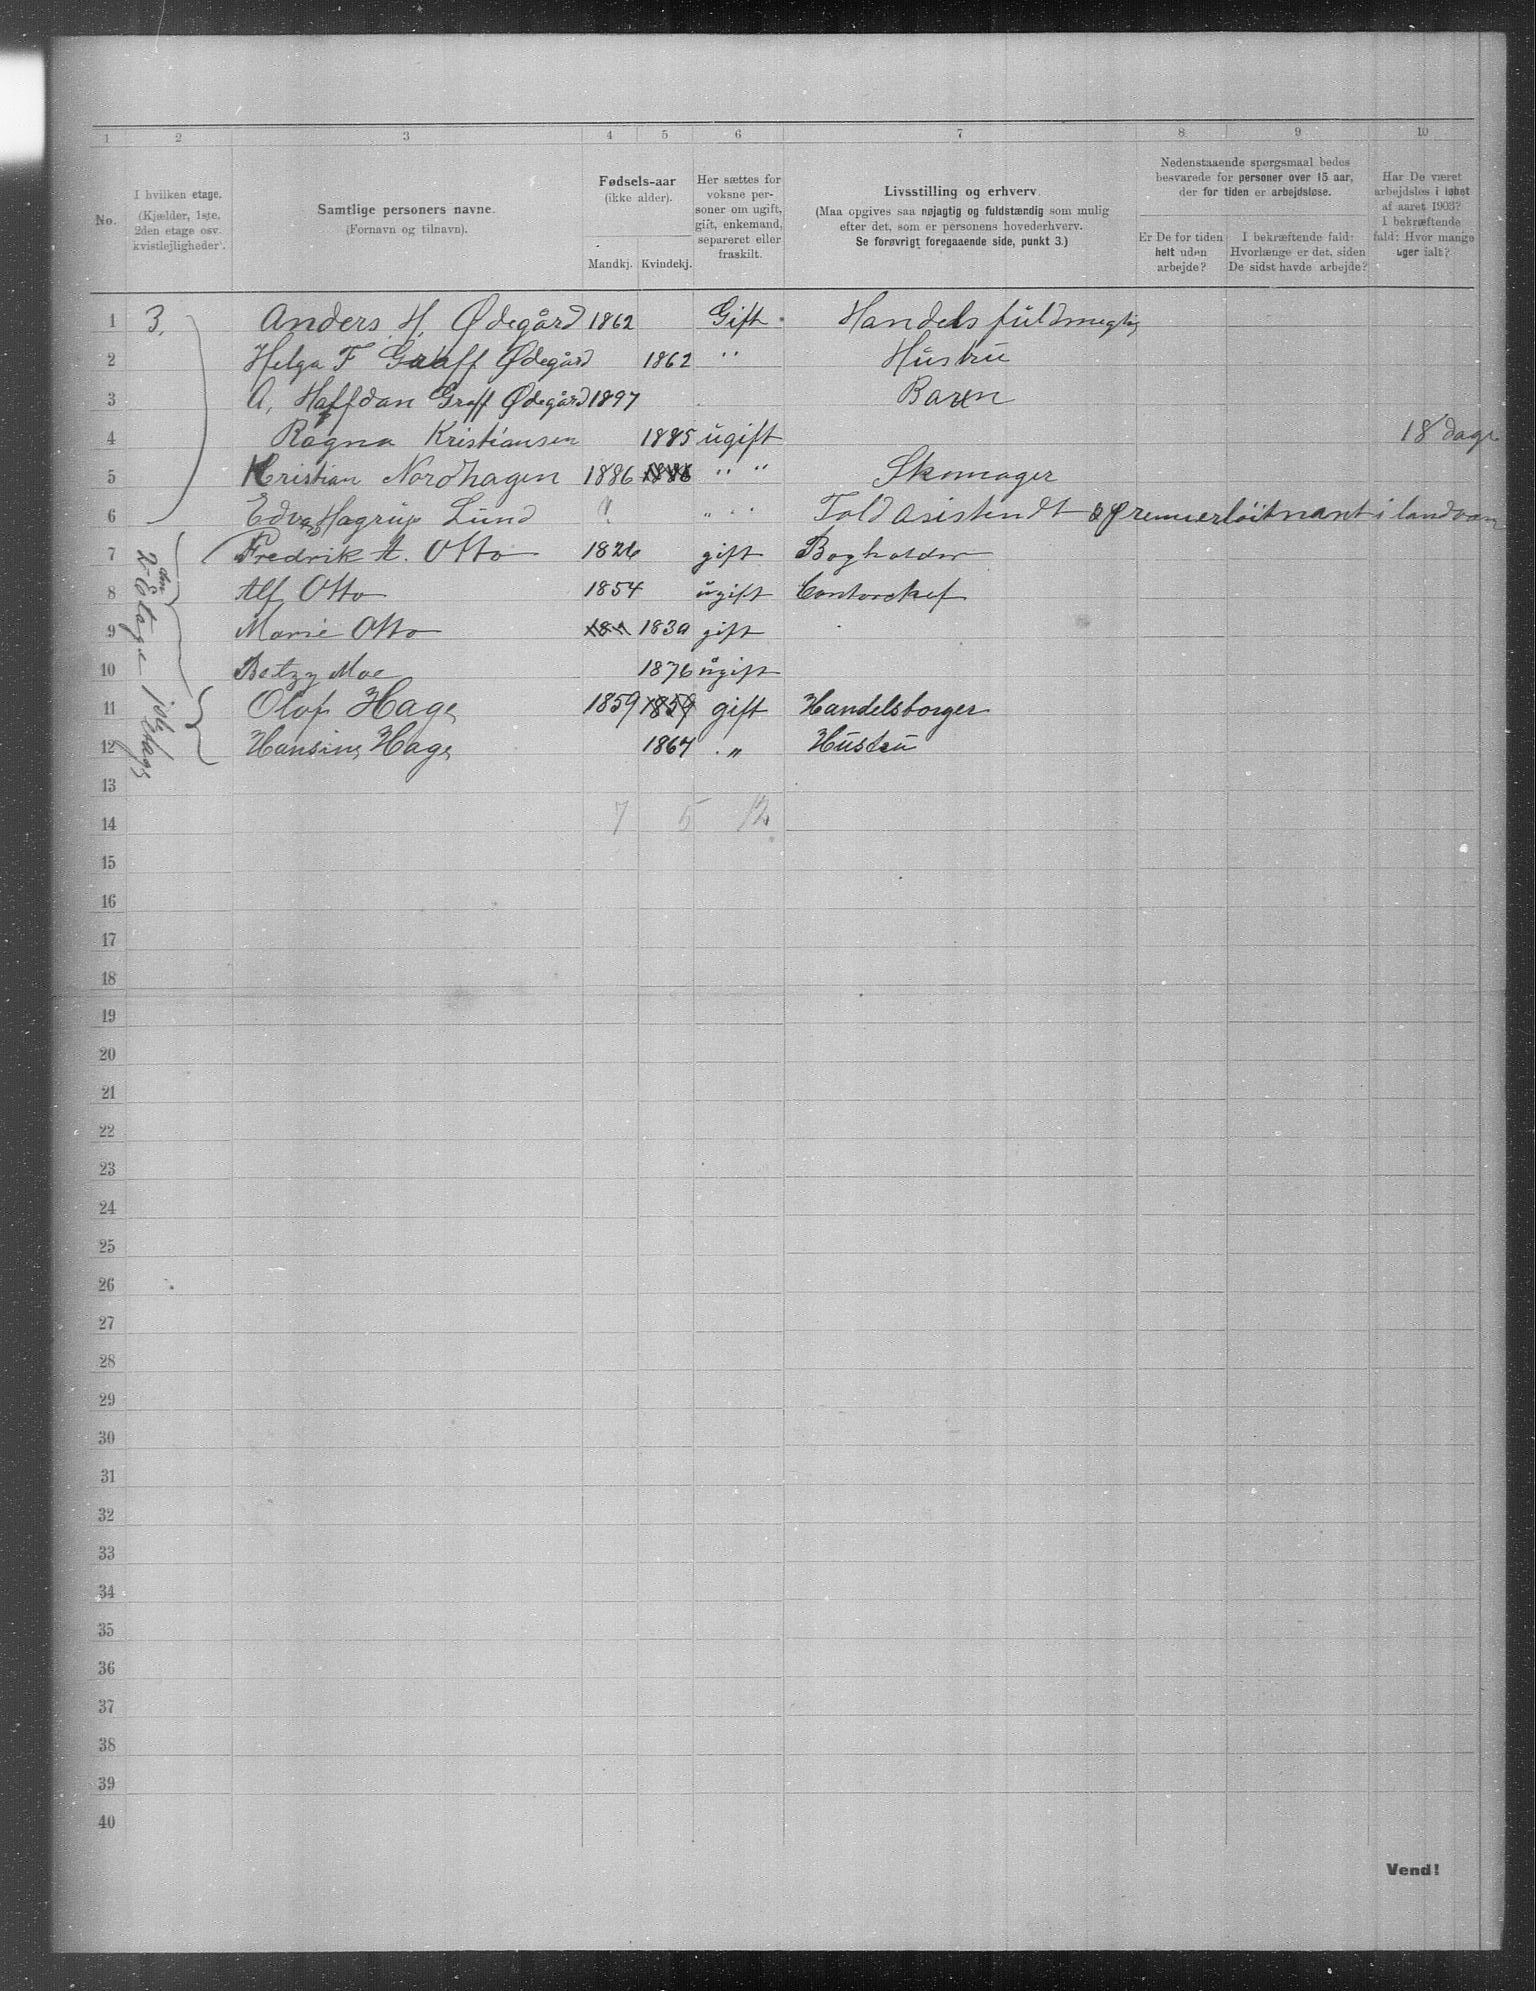 1 2 3 4 5 6 7 8 9 10
No.
I hvilken etage.
(Kjælder, 1ste,
2den etage osv.
kvistlejligheder).
Samtlige personers navne.
(Fornavn og tilnavn).
Fødsels-aar
(ikke alder).
Mandkj. Kvindekj.
Her sættes for
voksne per-
soner om ugift,
gift, enkemand,
separeret eller
fraskilt.
Livsstilling og erhverv.
(Maa opgives saa nøjagtig og fuldstændig som mulig
efter det, som er personens hovederhverv.
Se forøvrigt foregaaende side, punkt 3.)
Nedenstaaende spørgsmaal bedes
besvarede for personer over 15 aar,
der for tiden er arbejdsløse.
Er De for tiden
helt uden
arbejde?
I bekræftende fald:
Hvorlænge er det, siden
De sidst havde arbejde?
Har De været
arbejdsløs i løbet
af aaret 1903?
I bekræftende
fald: Hvor mange
uger ialt?
1 3. Anders H. Ødegård 1862 Gift Handelsfuldmegtig
2 Helga F Graff Ødegård 1862 " Hustru
3 A. Halfdan Graff Ødegård 1897 Barn
4 Ragna Kristiansen 1885 ugift 18 dage
5 Kristian Nordhagen 1886 1886 " " Skomager
6 Edvard Hagrup Lund ? " " Toldasistendt & Premierløitnant i landværn
7 Fredrik A. Otto 1826 gift Bogholder
2den Etage
8 Alf Otto 1854 ugift Contorchef
9 Marie Otto 1830 gift
10 Betzy Moe 1876 ugift
11 Olof Hage 1859 1859 gift Handelsborger
12 Hansine Hage 1867 " Hustru
13
7 5 12
14
15
16
17
18
19
20
21
22
23
24
25
26
27
28
29
30
31
32
33
34
35
36
37
38
39
40
Vend!